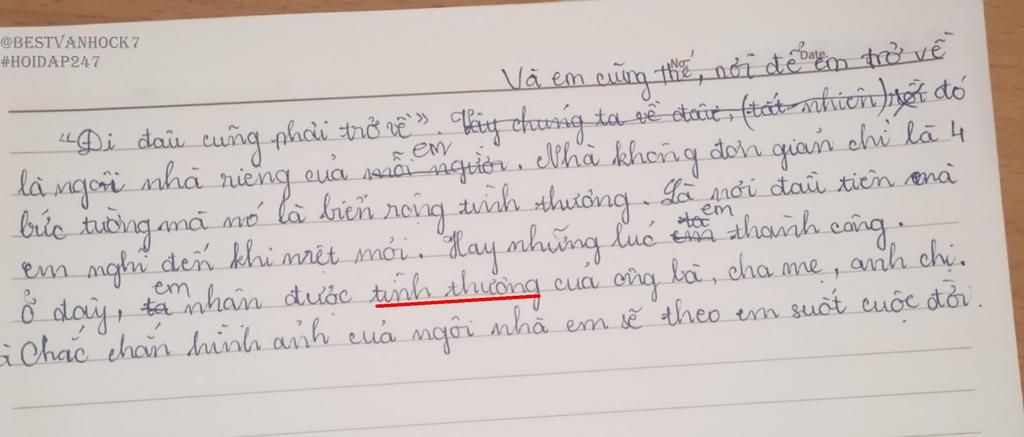 @BESTVANHOCK7
#HOIDAP247
No
Date
Và em cũng thế, nơi để em trở về
"Đi đâu cũng phải trở về". Vậy chúng ta về đâu, (tất nhiên) nơi đó
là ngôi nhà riêng của mỗi người. em Nhà không đơn giản chỉ là 4
bức tường mà nó là biển rộng tình thương. Là nơi đầu tiên mà
em nghĩ đến khi mệt mỏi. Hay những lúc ta em em thành công.
Ở đây, ta em nhận được tình thương của ông bà, cha mẹ, anh chị.
Chắc chắn hình ảnh của ngôi nhà em sẽ theo em suốt cuộc đời.